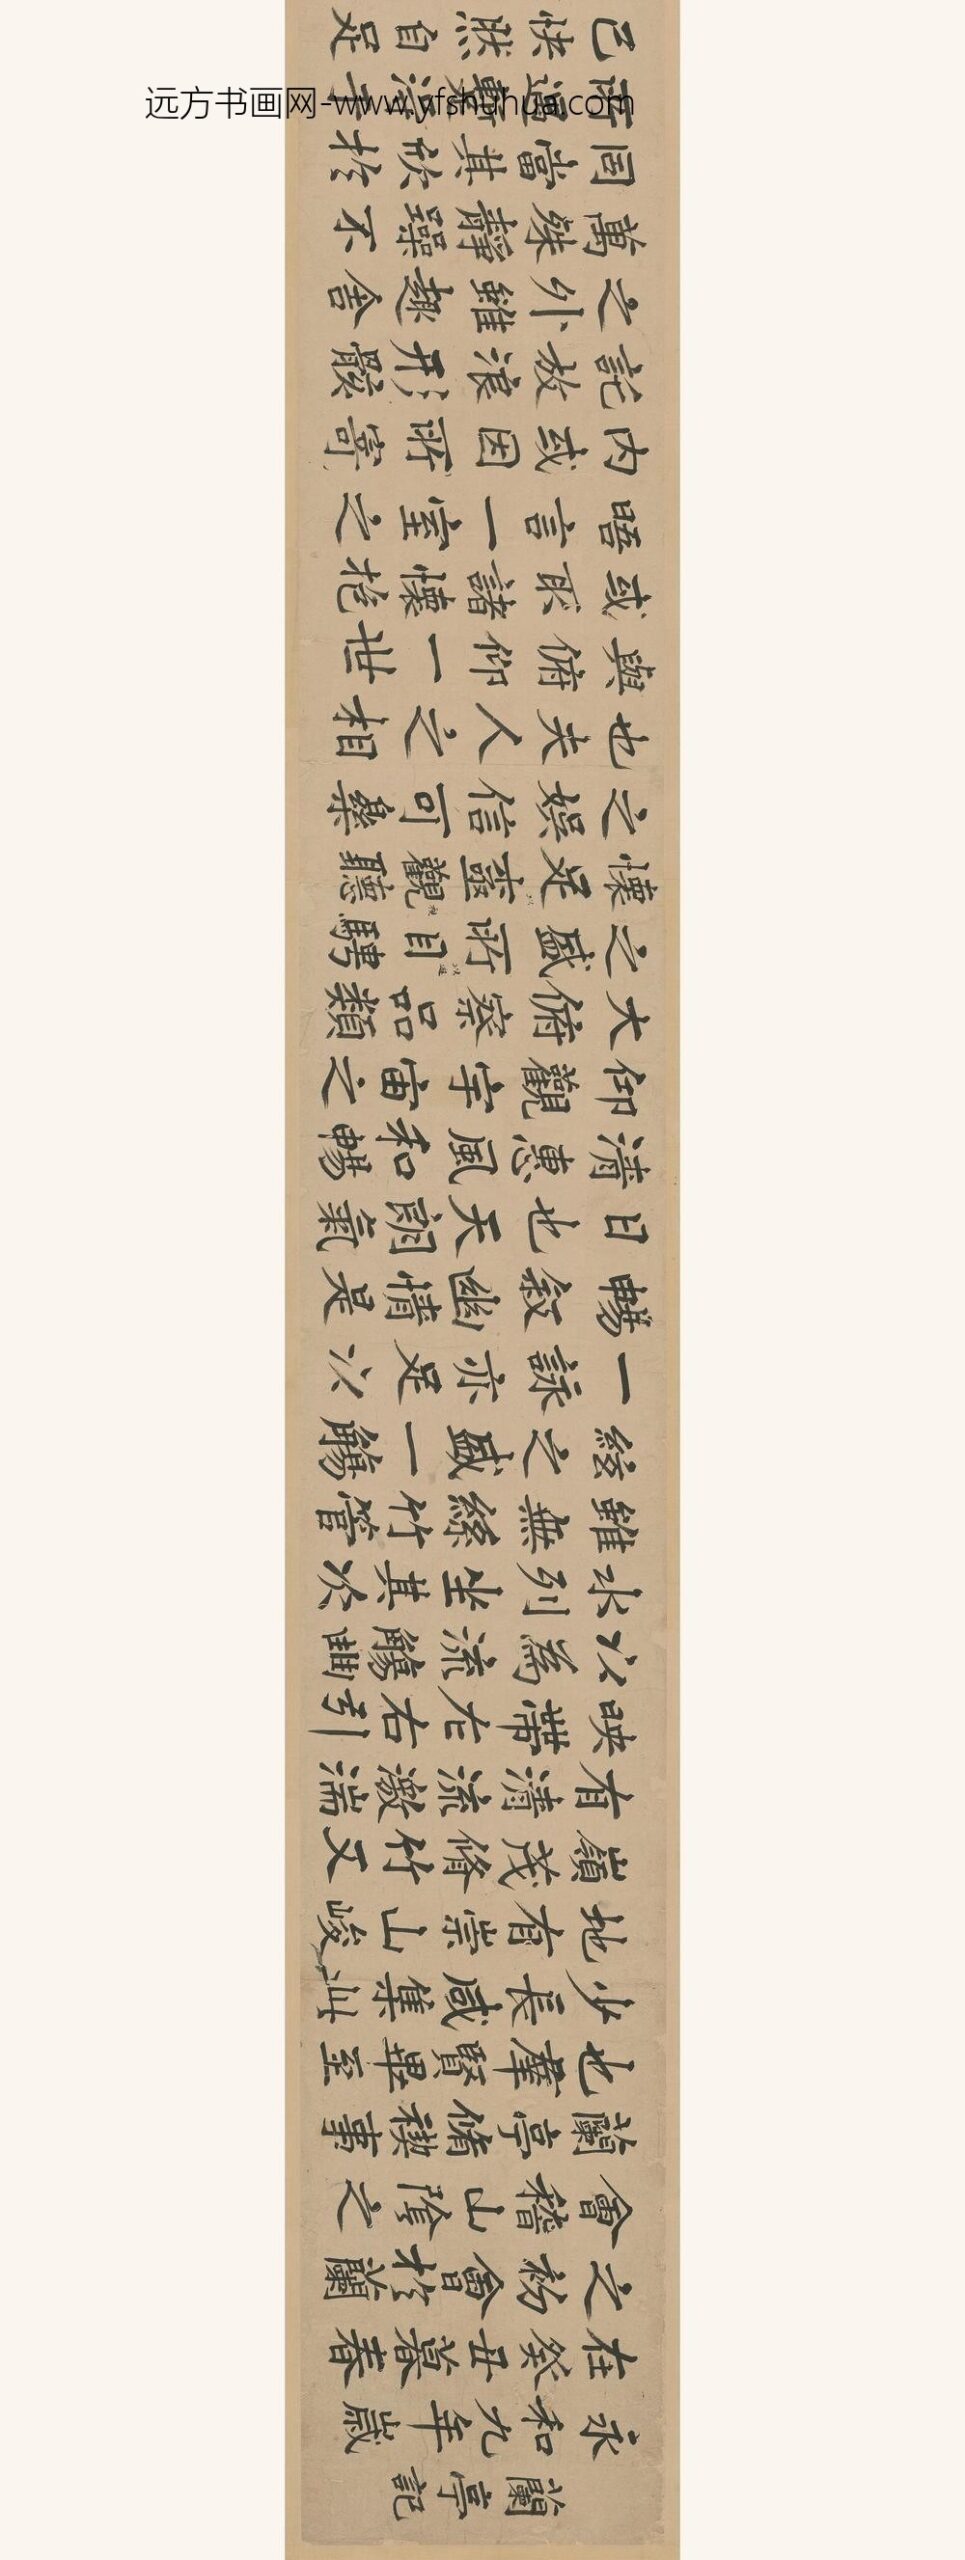 远方书画网-www.yfshuhua.com
蘭亭記
永和九年歲
在癸丑暮春
之初會於蘭
會稽山陰之
蘭亭脩禊事
也羣賢畢至
少長咸集此
地有崇山峻
嶺茂脩竹又
有清流激湍
映帶左右引
以為流觴曲
水列坐其次
雖無絲竹管
絃之盛一觴
一詠亦足以
暢敘幽情是
日也天朗氣
清惠風和暢
仰觀宇宙之
大俯察品類
之盛所目騁
懷足觀聽
之娛信可樂
也夫人之相
與俯仰一世
或取諸懷抱
晤言一室之
內或因所寄
託放浪形骸
之外雖趣舍
萬殊靜躁不
同當其欣於
所遇暫得於
己快然自足